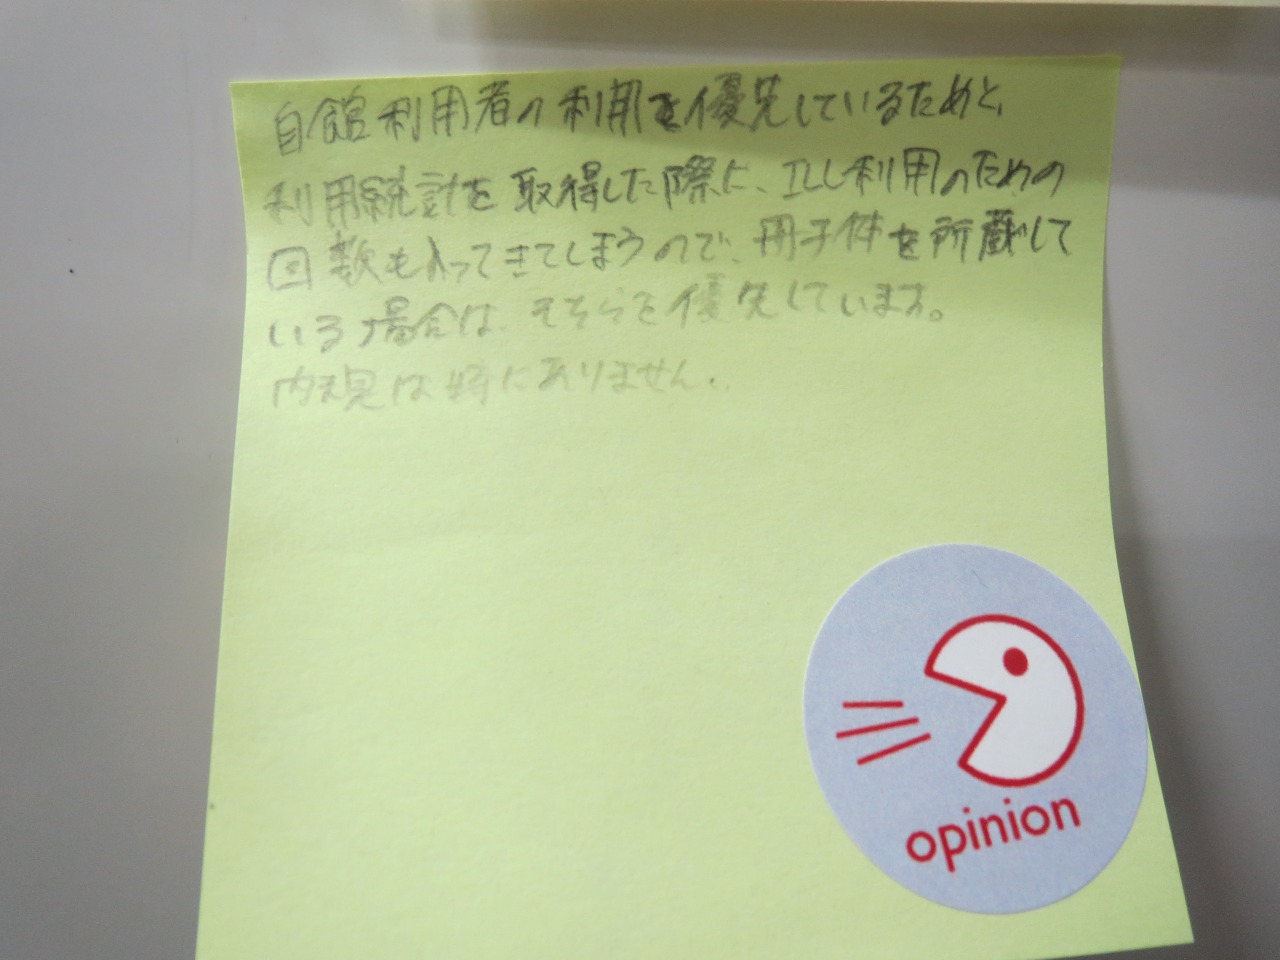 自館利用者の利用を優先しているためと、
利用統計を取得した際に、ILL利用のための
回数も入ってきてしまうので、冊子体を所蔵して
いる場合は、そちらを優先しています。
内規は特にありません。
opinion